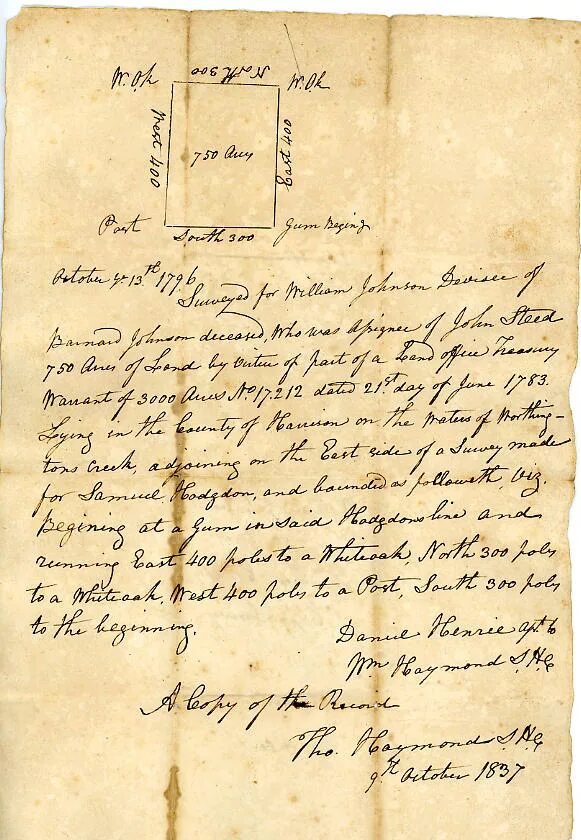 North 300
W. Ok
W. Ok
West 400
750 Acres
East 400
Post
Gum Begining
South 300
October ye 13th 1796
Surveyed for William Johnson Devisee of
Barnard Johnson deceased, Who was assignee of John Steed
750 Acres of Land by virtue of part of a Land office Treasury
Warrant of 3000 Acres No 17.212 dated 21st day of June 1783.
Lying in the County of Harrison on the Waters of Worthing-
tons creek, adjoining on the East side of a Survey made
for Samuel Hodgdon, and bounded as followeth, Viz.
Begining at a Gum in said Hodgdons line and
running East 400 poles to a Whiteoak, North 300 poles
to a Whiteoak, West 400 poles to a Post, South 300 poles
to the beginning.
Daniel Henrie asst to
Wm Haymond S.H.C
A Copy of the Record
Tho. Haymond S.H.C
9th October 1837